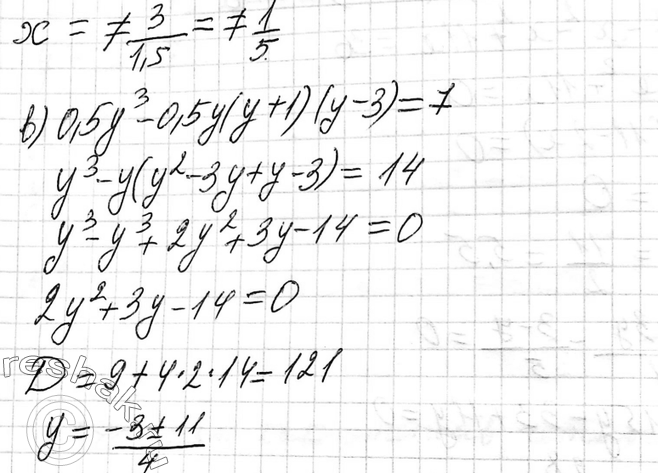 x = ∓ 3/1,5 = ∓ 1/5
в) 0,5y³ - 0,5y(y+1)(y-3) = 7
y³ - y(y² - 3y + y - 3) = 14
y³ - y³ + 2y² + 3y - 14 = 0
2y² + 3y - 14 = 0
D = 9 + 4·2·14 = 121
y = (-3 ± 11)/4
reshak.ru